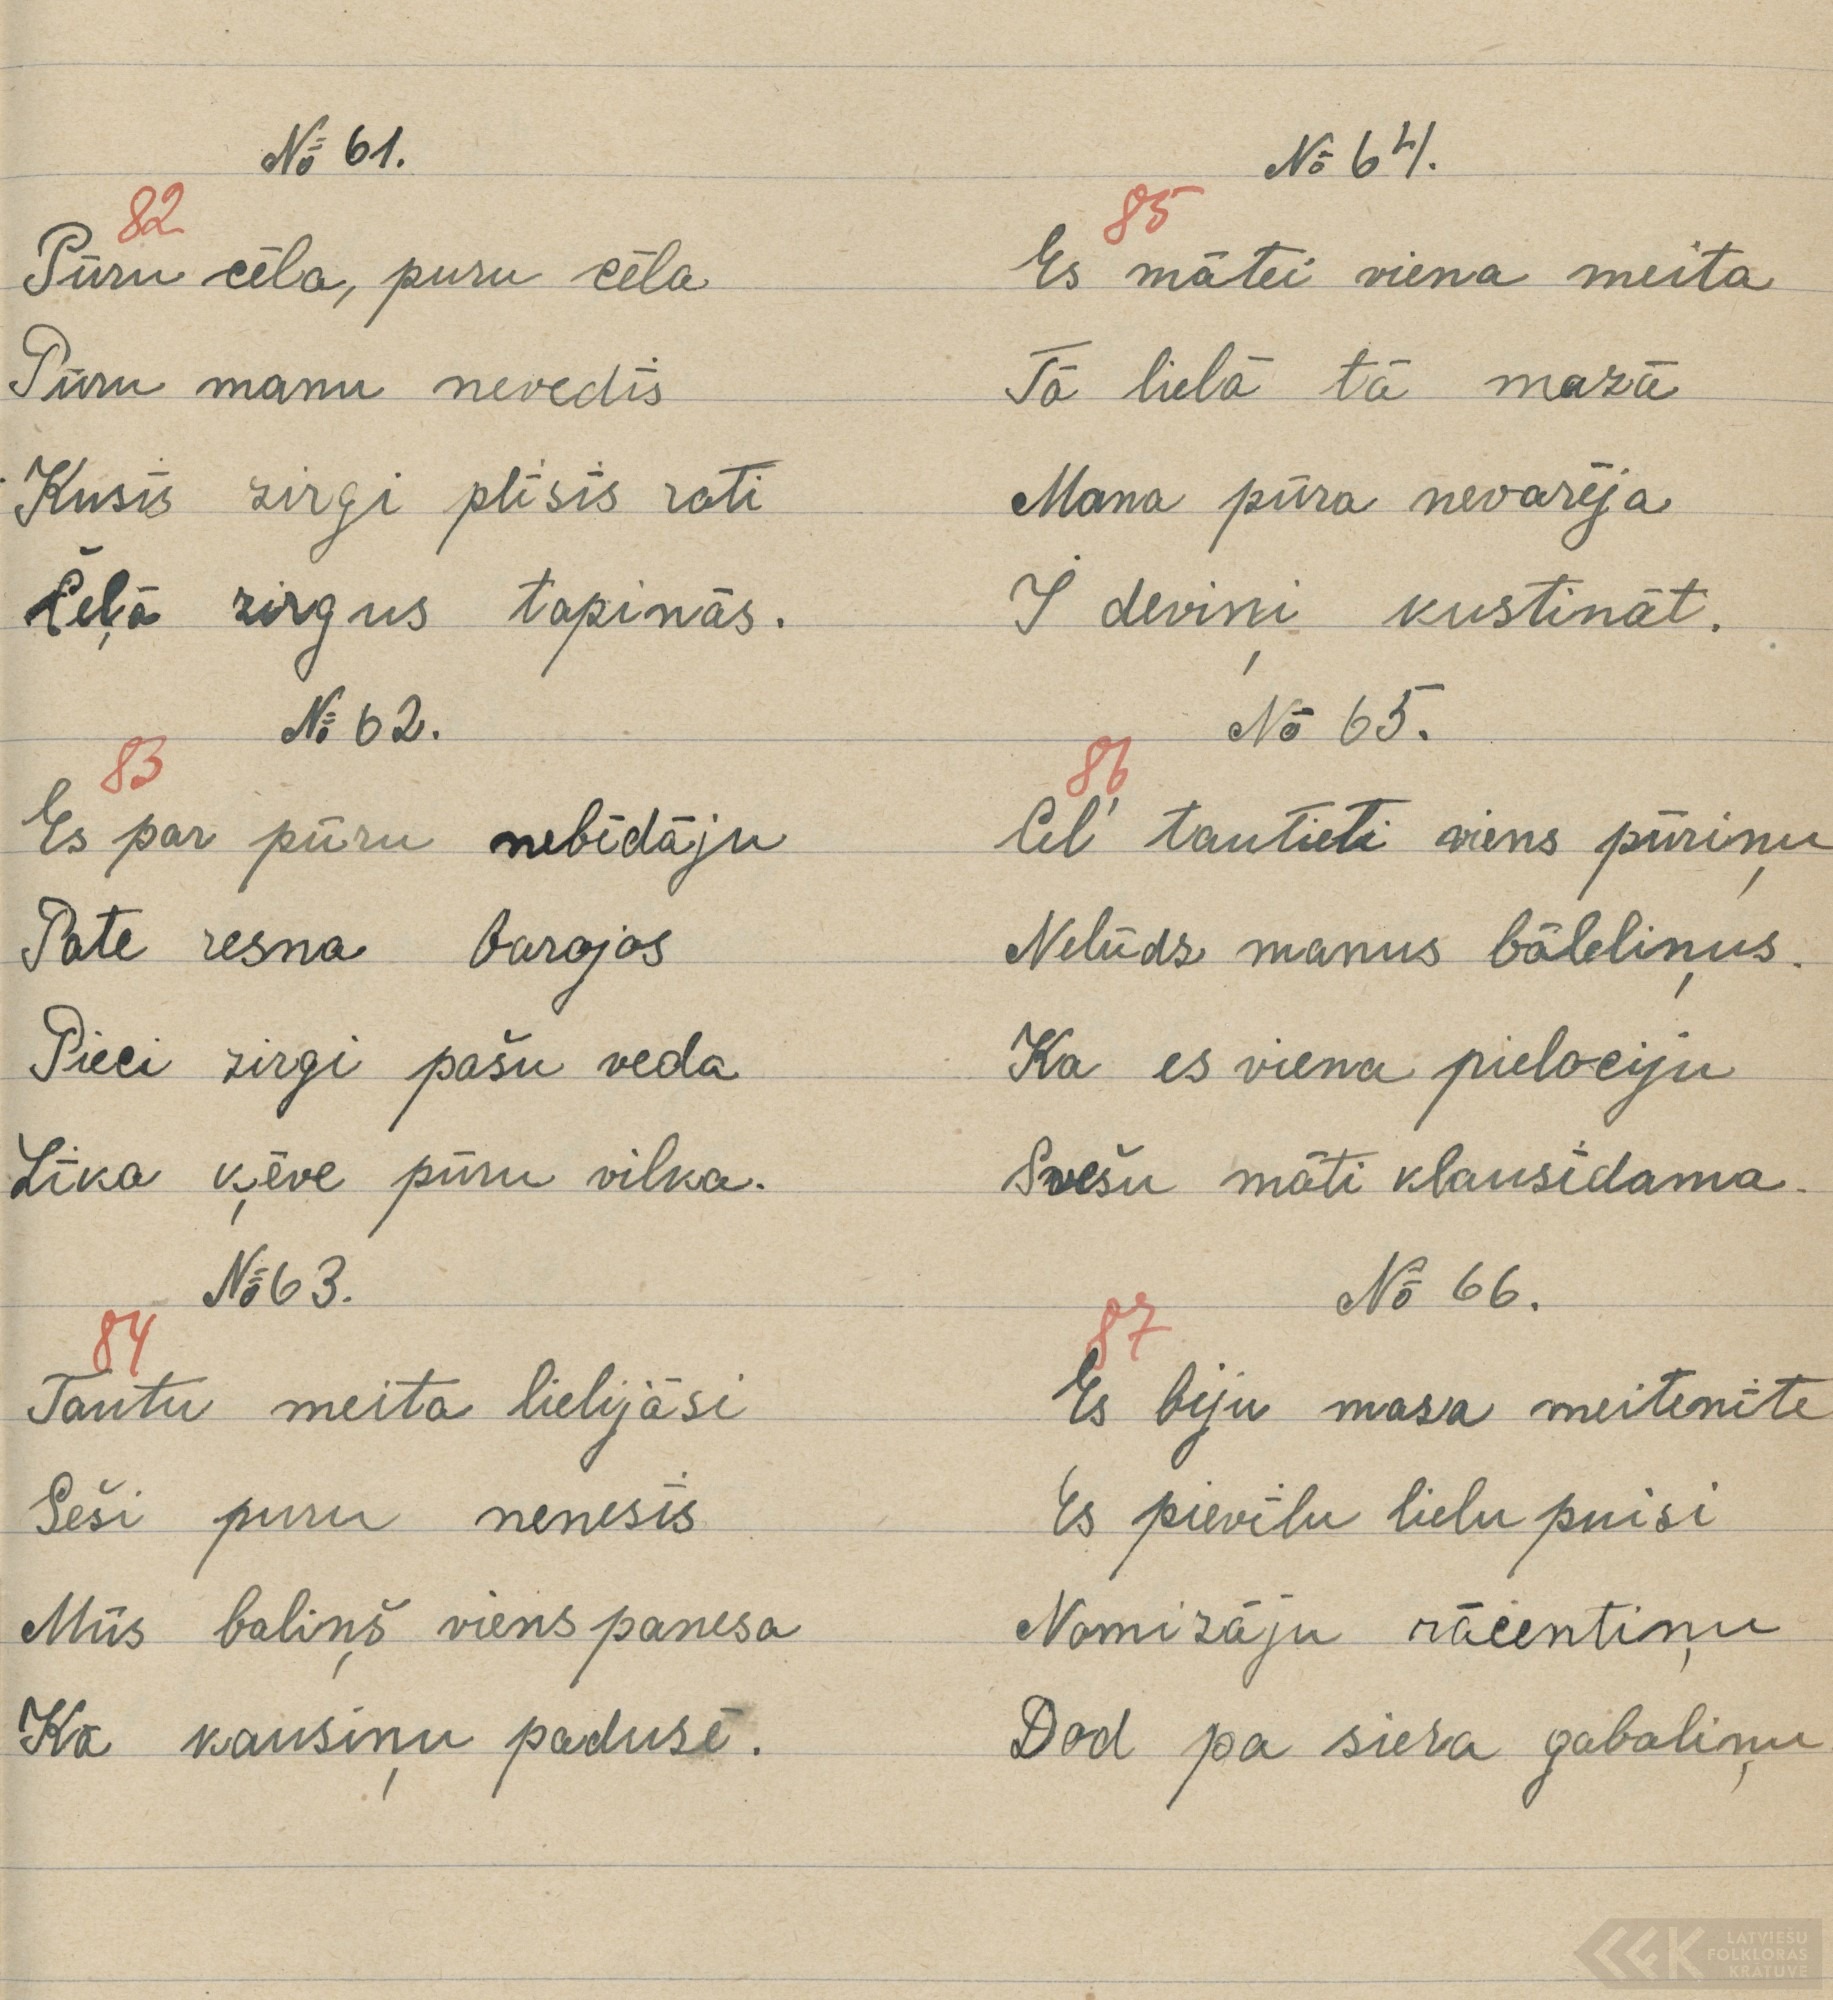 № 61.
82
Pūru cēla, puru cēla
Pūru manu nevedīs
Kusīs zirgi plīsīs rati
Čeļā zirgus tapinās.
№ 62.
83
Es par pūru nebīdāju
Pate resna barojos
Pieci zirgi pašu veda
Līka ķēve pūru vilka.
№ 63.
84
Tautu meita lielijāsi
Seši puru nenesīs
Mūs baliņš viens panesa
Kā kausiņu padusē.
№ 64.
85
Es mātei viena meita
Tā lielā tā mazā
Mana pūra nevarēja
I deviņi kustināt.
№ 65.
86
Cel' tautieti viens pūriņu
Nelūdz manus bāleliņus.
Ka es viena pielociju
Svešu māti klausīdama.
№ 66.
87
Es biju maza meitenīte
Es pievīlu lielu puisi
Nomizāju rācentiņu
Dod pa siera gabaliņu
LATVIEŠU
FOLKLORAS
KRĀTUVE